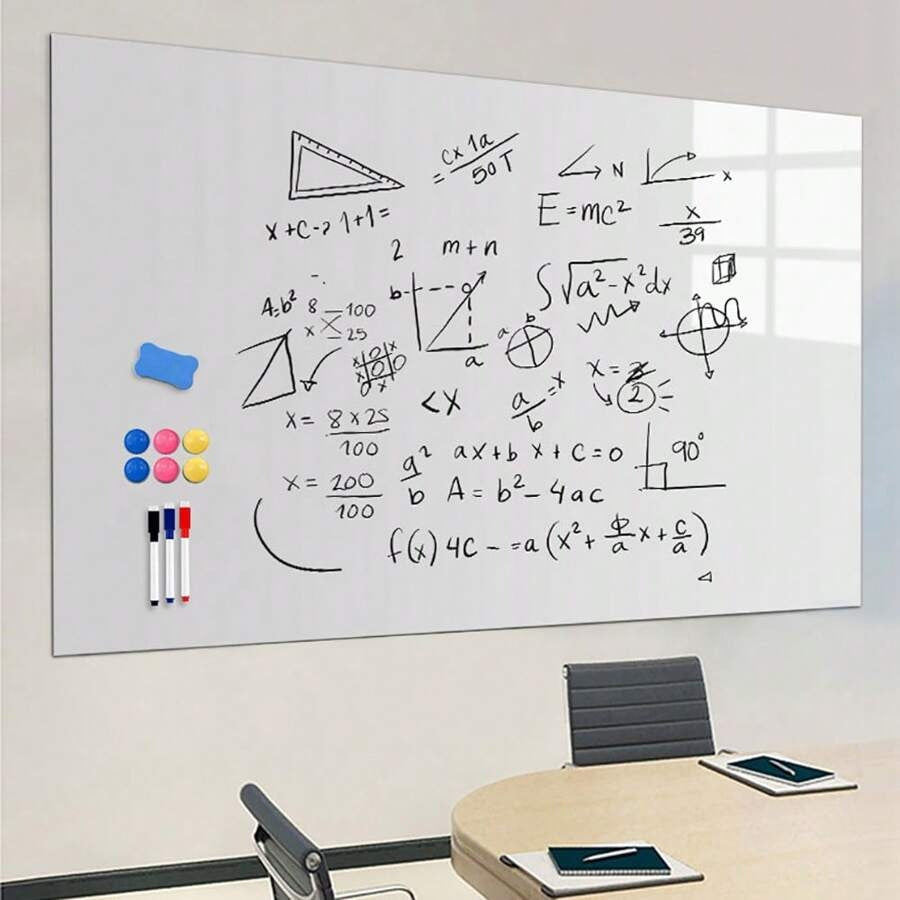 = cx1a/50T
N
x
x+c-> 1+1=
E=mc²
x/39
2 m+n
∫√a²-x²dx
A=b²
8 — 100
x — 25
b
a
a b
x o x
x o o
x = 2
2
x = 8x25/100
<x
a/b = x
a²/b
ax+b x+c=0
90°
x = 200/100
A = b²-4ac
f(x) 4c - =a(x²+ b/a x+ c/a)